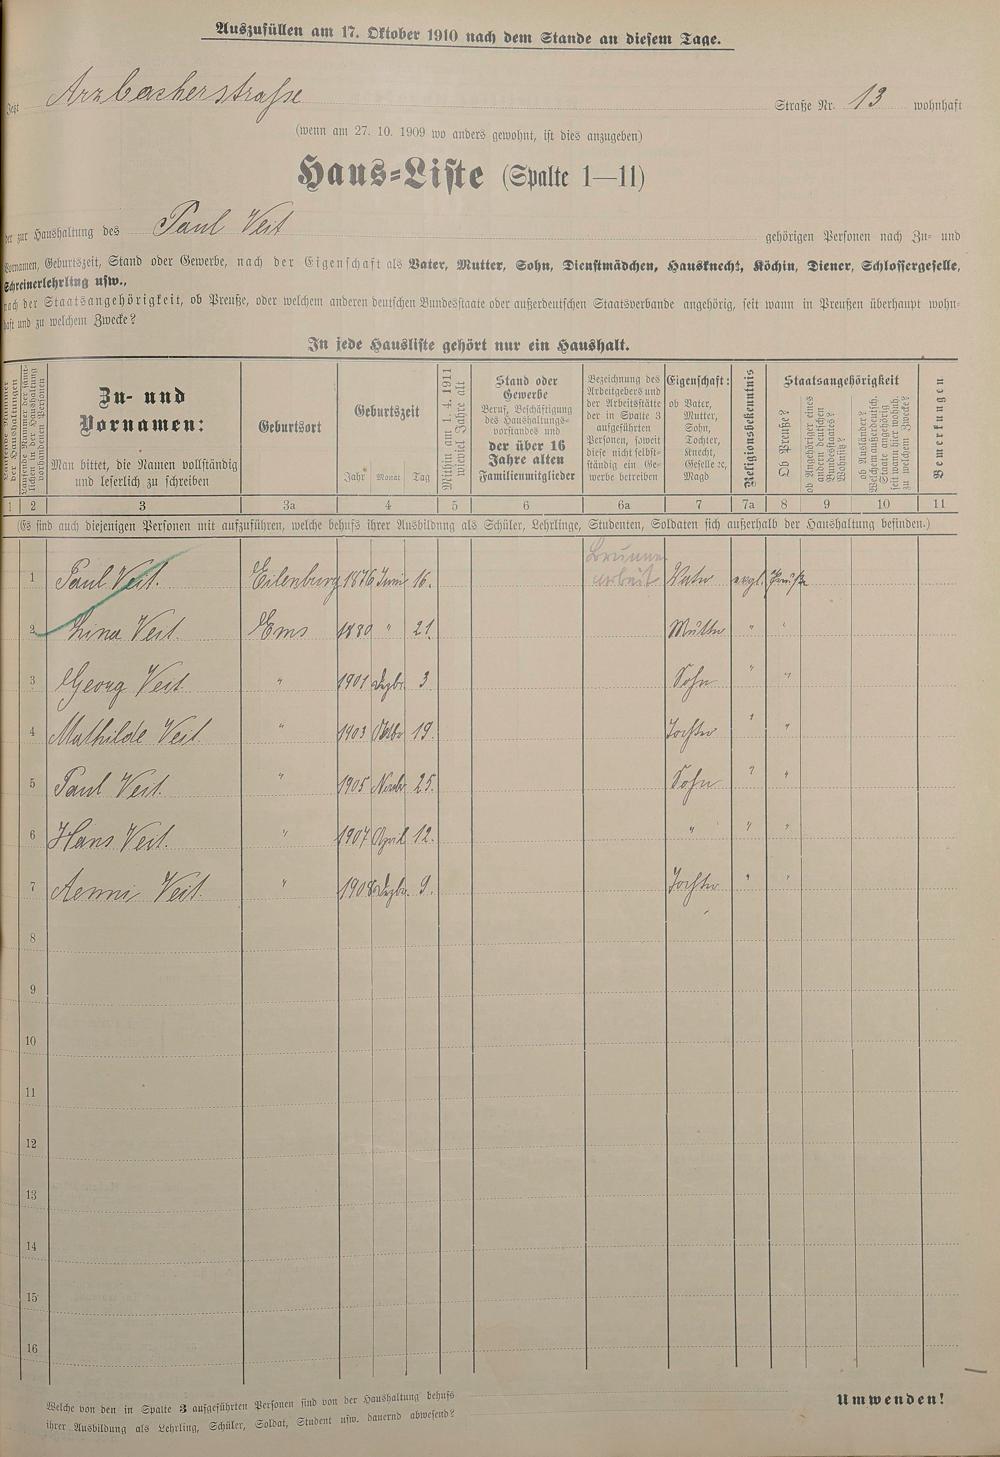 Auszufüllen am 17. Oktober 1910 nach dem Stande an diesem Tage.
Jetzt Arzbacherstraße Straße Nr. 13 wohnhaft
(wenn am 27. 10. 1909 wo anders gewohnt, ist dies anzugeben)
Haus-Liste (Spalte 1—11)
der zur Haushaltung des Paul Veit gehörigen Personen nach Zu- und
Vornamen, Geburtszeit, Stand oder Gewerbe, nach der Eigenschaft als Vater, Mutter, Sohn, Dienstmädchen, Hausknecht, Köchin, Diener, Schlossergeselle,
Schreinerlehrling usw.,
nach der Staatsangehörigkeit, ob Preuße, oder welchem anderen deutschen Bundesstaate oder außerdeutschen Staatsverbande angehörig, seit wann in Preußen überhaupt wohn-
haft und zu welchem Zwecke?
In jede Hausliste gehört nur ein Haushalt.
der Haushaltungen
Laufende Nummer der sämt-
lichen in der Haushaltung
vorhandenen Personen
Zu- und
Vornamen:
Man bittet, die Namen vollständig
und leserlich zu schreiben
Geburtsort
Geburtszeit
Jahr Monat Tag
Mithin am 1. 4. 1911
wieviel Jahre alt
Stand oder
Gewerbe
Beruf, Beschäftigung
des Haushaltungs-
vorstandes und
der über 16
Jahre alten
Familienmitglieder
Bezeichnung des
Arbeitgebers und
der Arbeitsstätte
der in Spalte 3
aufgeführten
Personen, soweit
diese nicht selbst-
ständig ein Ge-
werbe betreiben
Eigenschaft:
ob Vater,
Mutter,
Sohn,
Tochter,
Knecht,
Geselle ꝛc,
Magd
Religionsbekenntnis
Staatsangehörigkeit
Ob Preuße?
ob Angehöriger eines
andern deutschen
Bundesstaates?
Wohnsitz?
ob Ausländer?
Welchem außerdeutsch.
Staate angehörig
seit wann hier wohnh.
zu welchem Zwecke?
Bemerkungen
1 2 3 3a 4 5 6 6a 7 7a 8 9 10 11
(Es sind auch diejenigen Personen mit aufzuführen, welche behufs ihrer Ausbildung als Schüler, Lehrlinge, Studenten, Soldaten sich außerhalb der Haushaltung befinden.)
1 Paul Veit. Eilenburg 1876 Juni 16. Brunnenarbeit Vater evgl. Preuße
2 Lina Veit Ems 1880 " 21. Mutter " "
3 Georg Veit " 1901 Dezbr. 3 Sohn " "
4 Mathilde Veit. " 1903 Oktbr 19. Tochter " "
5 Paul Veit. " 1905 Novbr. 25. Sohn " "
6 Hans Veit. " 1907 April 12. " " "
7 Aenni Veit. " 1908 Dezbr. 9. Tochter " "
8
9
10
11
12
13
14
15
16
Welche von den in Spalte 3 aufgeführten Personen sind von der Haushaltung behufs
ihrer Ausbildung als Lehrling, Schüler, Soldat, Student usw. dauernd abwesend?
Umwenden!